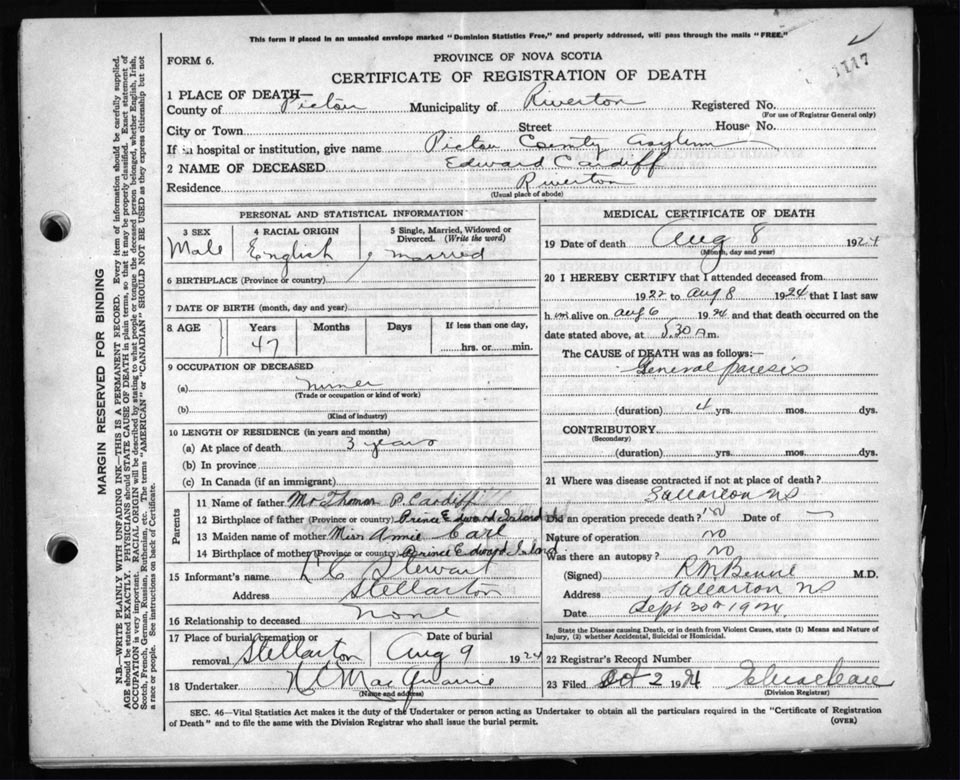 This form if placed in an unsealed envelope marked "Dominion Statistics Free," and properly addressed, will pass through the mails "FREE."
FORM 6.
PROVINCE OF NOVA SCOTIA
CERTIFICATE OF REGISTRATION OF DEATH
1117
1 PLACE OF DEATH—
County of Pictou Municipality of Riverton Registered No.
(For use of Registrar General only)
City or Town Street House No.
If in hospital or institution, give name Pictou County Asylum
2 NAME OF DECEASED Edward Cardiff
Residence Riverton
(Usual place of abode)
PERSONAL AND STATISTICAL INFORMATION
3 SEX
Male
4 RACIAL ORIGIN
English
5 Single, Married, Widowed or Divorced. (Write the word)
married
6 BIRTHPLACE (Province or country)
7 DATE OF BIRTH (month, day and year)
8 AGE Years Months Days If less than one day,
47 hrs. or min.
9 OCCUPATION OF DECEASED
(a)
(Trade or occupation or kind of work)
(b)
(Kind of industry)
10 LENGTH OF RESIDENCE (in years and months)
(a) At place of death 3 years
(b) In province
(c) In Canada (if an immigrant)
Parents
11 Name of father Mr Thomas P. Cardiff
12 Birthplace of father (Province or country) Prince Edward Island
13 Maiden name of mother Miss Annie Carl
14 Birthplace of mother (Province or country) Prince Edward Island
15 Informant's name Stewart
Address Stellarton
16 Relationship to deceased None
17 Place of burial, cremation or removal Stellarton
Date of burial
Aug 9 1924
18 Undertaker
(Name and address)
MEDICAL CERTIFICATE OF DEATH
19 Date of death Aug 8 1924
(Month, day and year)
20 I HEREBY CERTIFY that I attended deceased from
1922 to Aug 8 1924 that I last saw
him alive on Aug 6 1924 and that death occurred on the
date stated above, at 5.30 a m.
The CAUSE of DEATH was as follows:—
General Paresis
(duration) 4 yrs. mos. dys.
CONTRIBUTORY
(Secondary)
(duration) yrs. mos. dys.
21 Where was disease contracted if not at place of death?
Stellarton NS
Did an operation precede death? no Date of —
Nature of operation no
Was there an autopsy? No
(Signed) M.D.
Address Stellarton NS
Date Sept 30th 1924
State the Disease causing Death, or in death from Violent Causes, state (1) Means and Nature of Injury, (2) whether Accidental, Suicidal or Homicidal.
22 Registrar's Record Number
23 Filed Oct 2 1924
(Division Registrar)
SEC. 46—Vital Statistics Act makes it the duty of the Undertaker or person acting as Undertaker to obtain all the particulars required in the "Certificate of Registration
of Death" and to file the same with the Division Registrar who shall issue the burial permit.
(OVER)
MARGIN RESERVED FOR BINDING
N.B.—WRITE PLAINLY WITH UNFADING INK—THIS IS A PERMANENT RECORD. Every item of information should be carefully supplied.
AGE should be stated EXACTLY. PHYSICIANS should STATE CAUSE OF DEATH in plain terms, so that it may be properly classified. Exact statement of
OCCUPATION is very important. RACIAL ORIGIN will be described by stating to what people or tongue the deceased person belonged, whether English, Irish,
Scotch, French, German, Russian, Ruthenian, etc. The terms "AMERICAN" or "CANADIAN" SHOULD NOT BE USED as they express citizenship but not
a race or people. See instructions on back of Certificate.